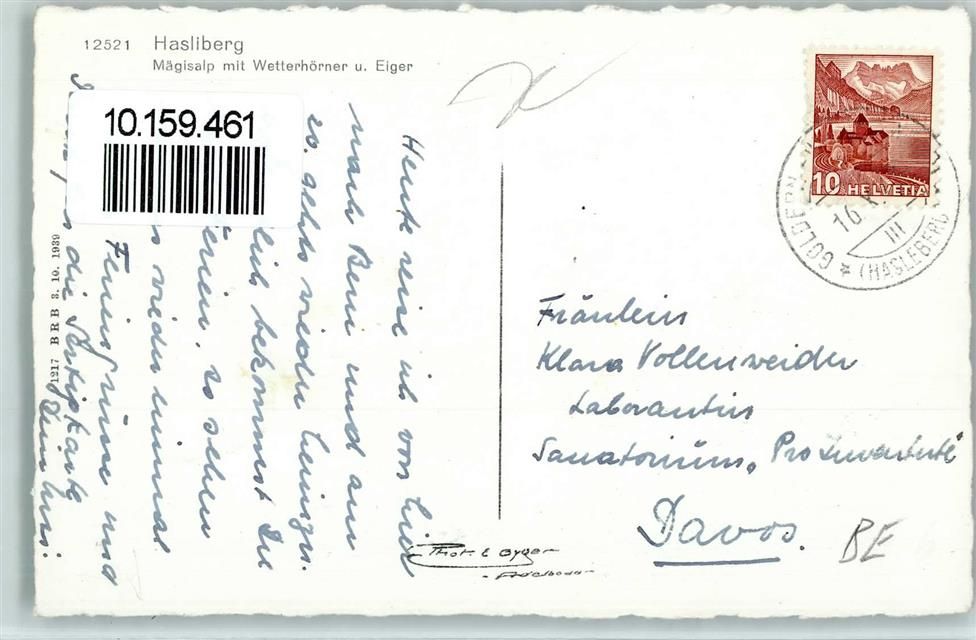 12521 Hasliberg
Mägisalp mit Wetterhörner u. Eiger
10.159.461
1217 BRB 3. 10. 1939
Heute reise ich von hier
nach Bern und am
20. gehts wieder heimzu.
bekommst Du
so sehen
wieder einmal
Feriengrüsse und
die Antipkarte
10 HELVETIA
16
GOLDERN
(HASLEBERG)
III
Fräulein
Klara Vollenweider
Laborantin
Sanatorium, Pro Juventute
Davos.
Phot. E. Gyger
- Adelboden -
BE